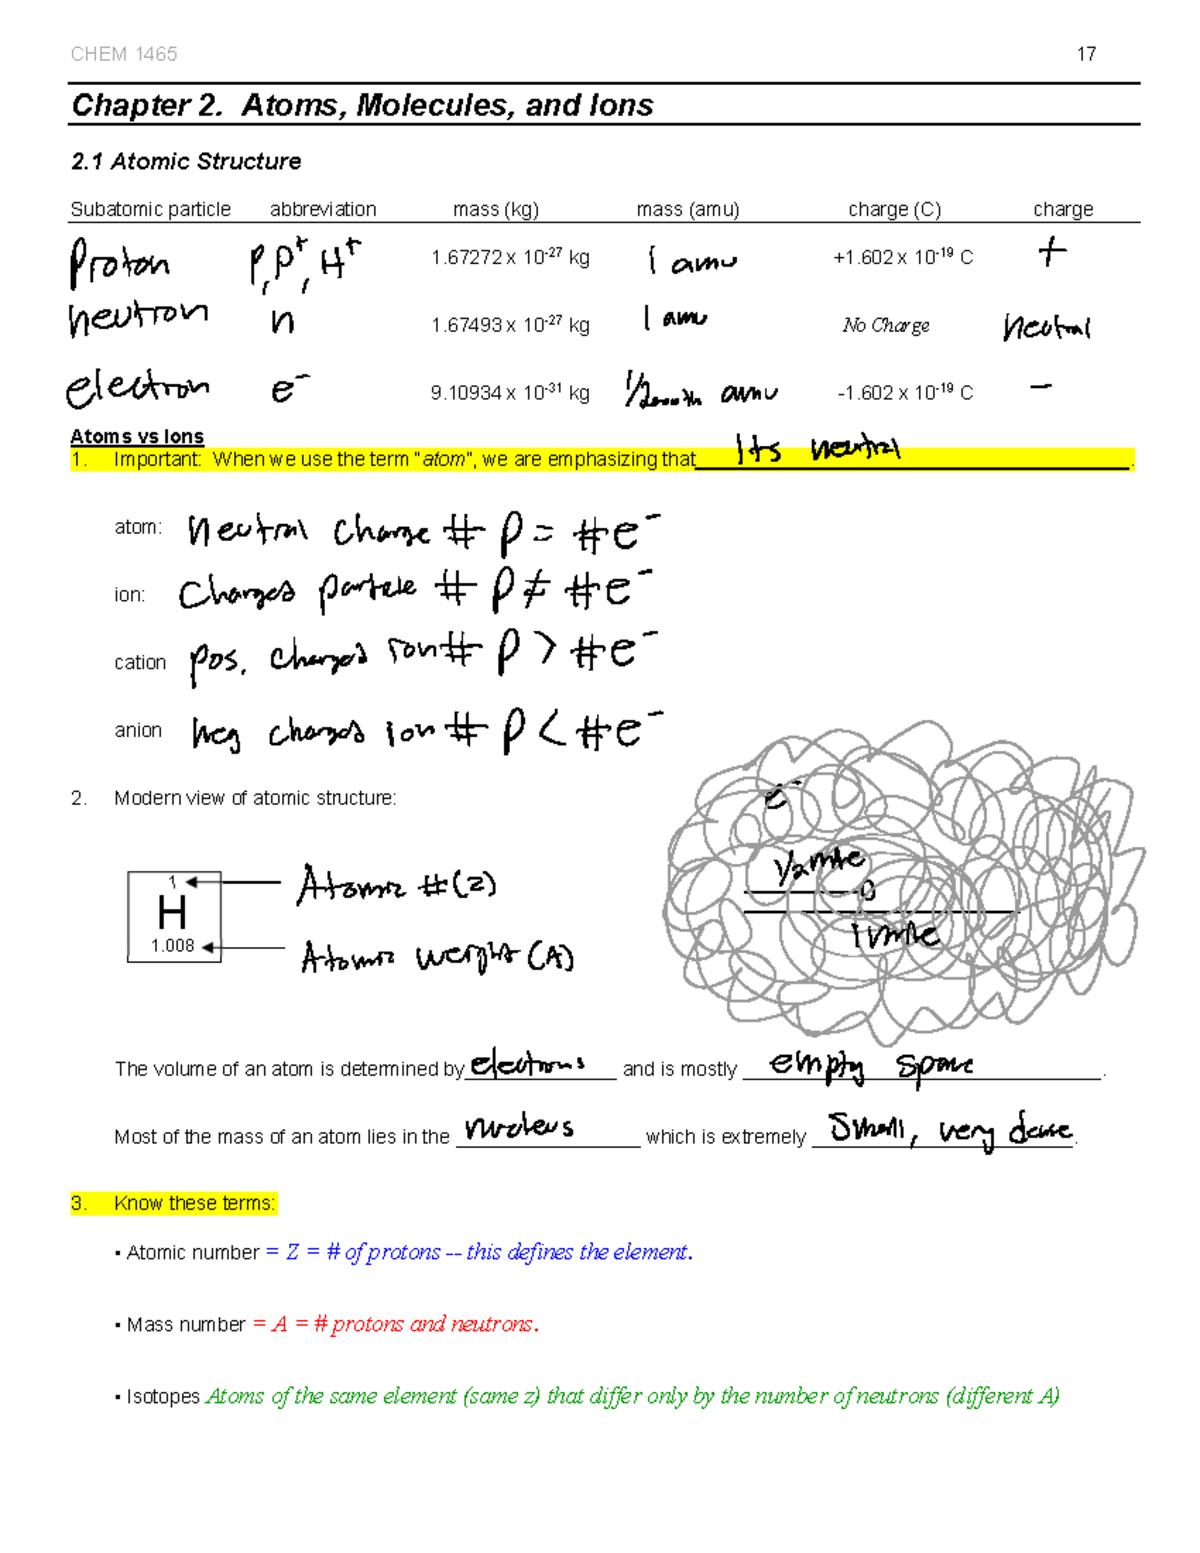 CHEM 1465 17
Chapter 2. Atoms, Molecules, and Ions
2.1 Atomic Structure
Subatomic particle abbreviation mass (kg) mass (amu) charge (C) charge
Proton P, P⁺, H⁺ 1.67272 x 10⁻²⁷ kg 1 amu +1.602 x 10⁻¹⁹ C +
neutron n 1.67493 x 10⁻²⁷ kg 1 amu No Charge neutral
electron e⁻ 9.10934 x 10⁻³¹ kg 1/2000th amu -1.602 x 10⁻¹⁹ C −
Atoms vs Ions
1. Important: When we use the term "atom", we are emphasizing that Its neutral.
atom: Neutral charge # P = #e⁻
ion: Charged particle # P ≠ #e⁻
cation pos. charged ion # P > #e⁻
anion neg charged ion # P < #e⁻
2. Modern view of atomic structure:
e⁻
1/2 mile
1 mile
1 Atomic #(Z)
H
1.008 Atomic weight (A)
The volume of an atom is determined by electrons and is mostly empty space.
Most of the mass of an atom lies in the nucleus which is extremely Small, very dense.
3. Know these terms:
▪ Atomic number = Z = # of protons -- this defines the element.
▪ Mass number = A = # protons and neutrons.
▪ Isotopes Atoms of the same element (same z) that differ only by the number of neutrons (different A)